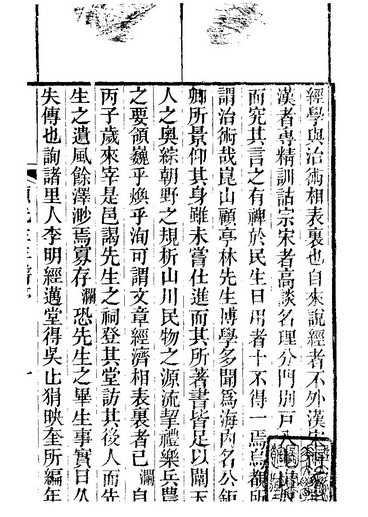 經學與治術相表裏也自來說經者不外漢宋
漢者專精訓詁宗宋者高談名理分門別戶
而究其言之有裨於民生日用者十不得一焉烏都所
謂治術哉崑山顧亭林先生博學多聞為海内名公鉅
卿所景仰其身雖未嘗仕進而其所著書皆足以闡五
人之奥綜朝野之規析山川民物之源流挈禮樂兵農
之要領巍乎煥乎洵可謂文章經濟相表裏者已瀾自
丙子歲來宰是邑謁先生之祠登其堂訪其後人而先
生之遺風餘澤渺焉寡存瀾恐先生之畢生事實日久
失傳也詢諸里人李明經邁堂得吳止狷映奎所編年